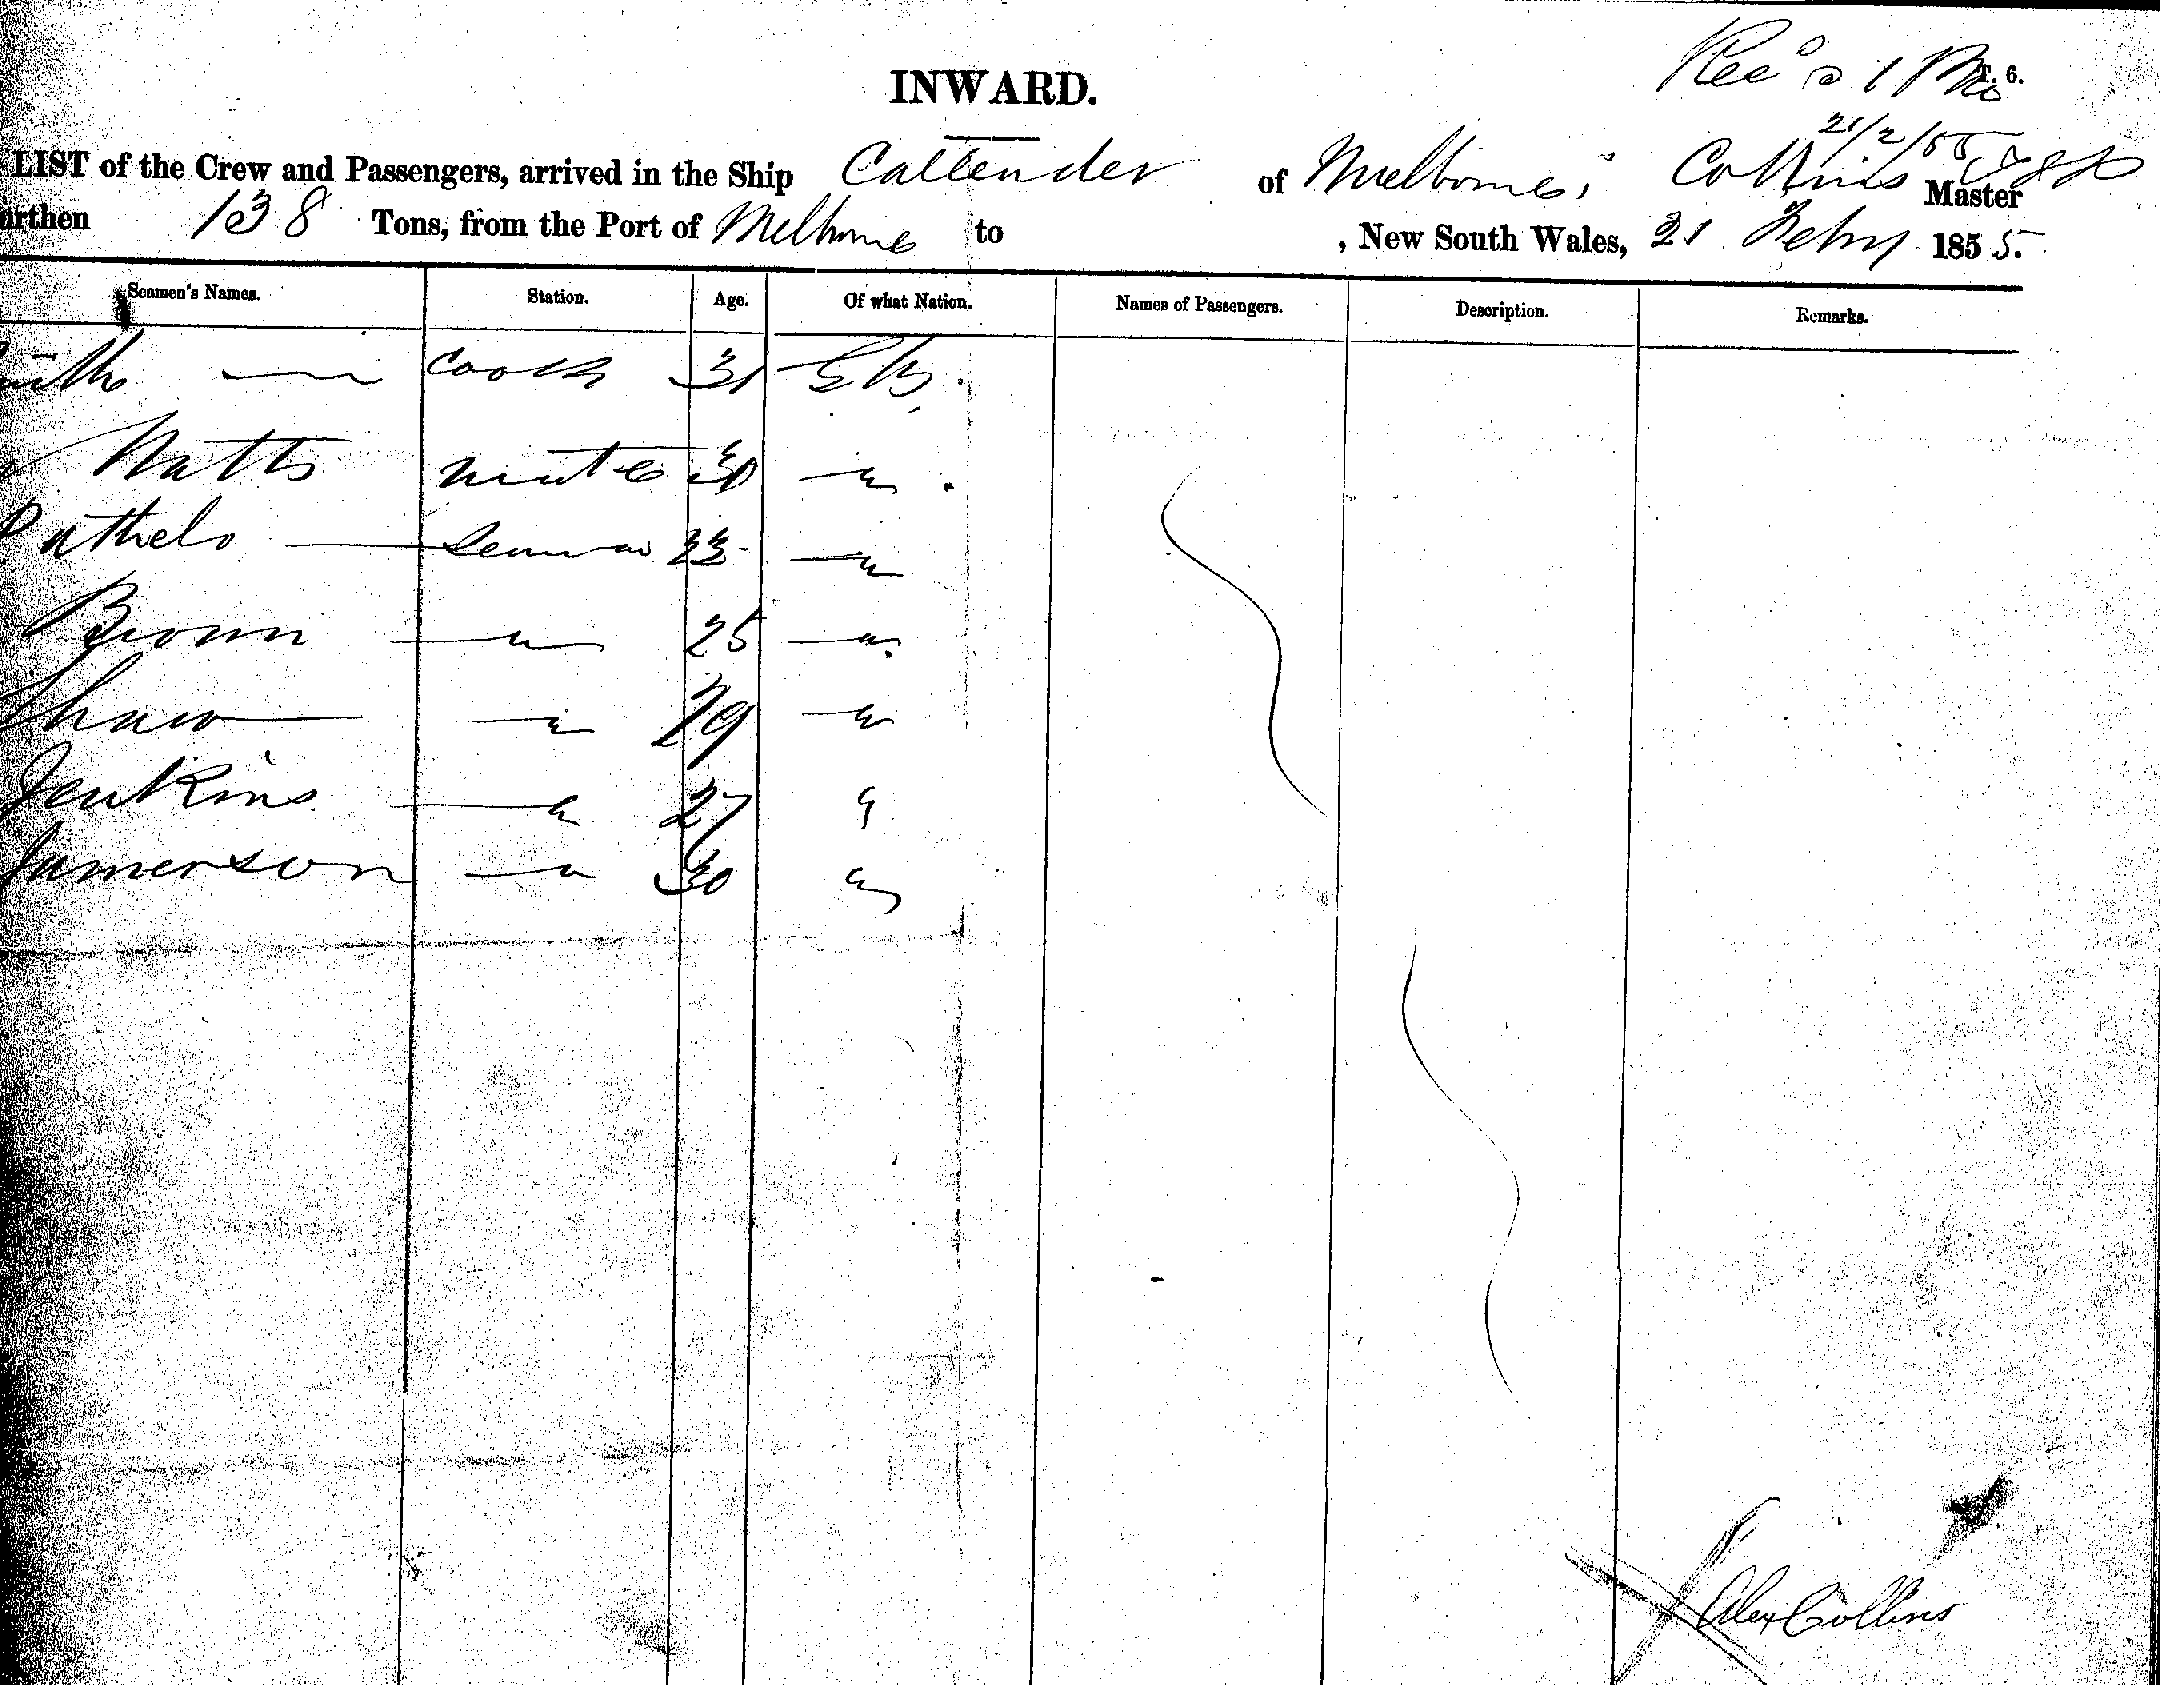 INWARD.
T. 6.
21/2/55
LIST of the Crew and Passengers, arrived in the Ship Callender of Melborne, Collins Master
urthen 138 Tons, from the Port of Melborne to , New South Wales, 21 Febry 1855.
Seamen's Names. Station. Age. Of what Nation. Names of Passengers. Description. Remarks.
mith cook 31 GB.
Watts mate 30 "
seaman 23 "
Brown " 25 "
Shaw " 29 "
Jenkins " 27 "
Jamerson " 30 "
Alex Collins